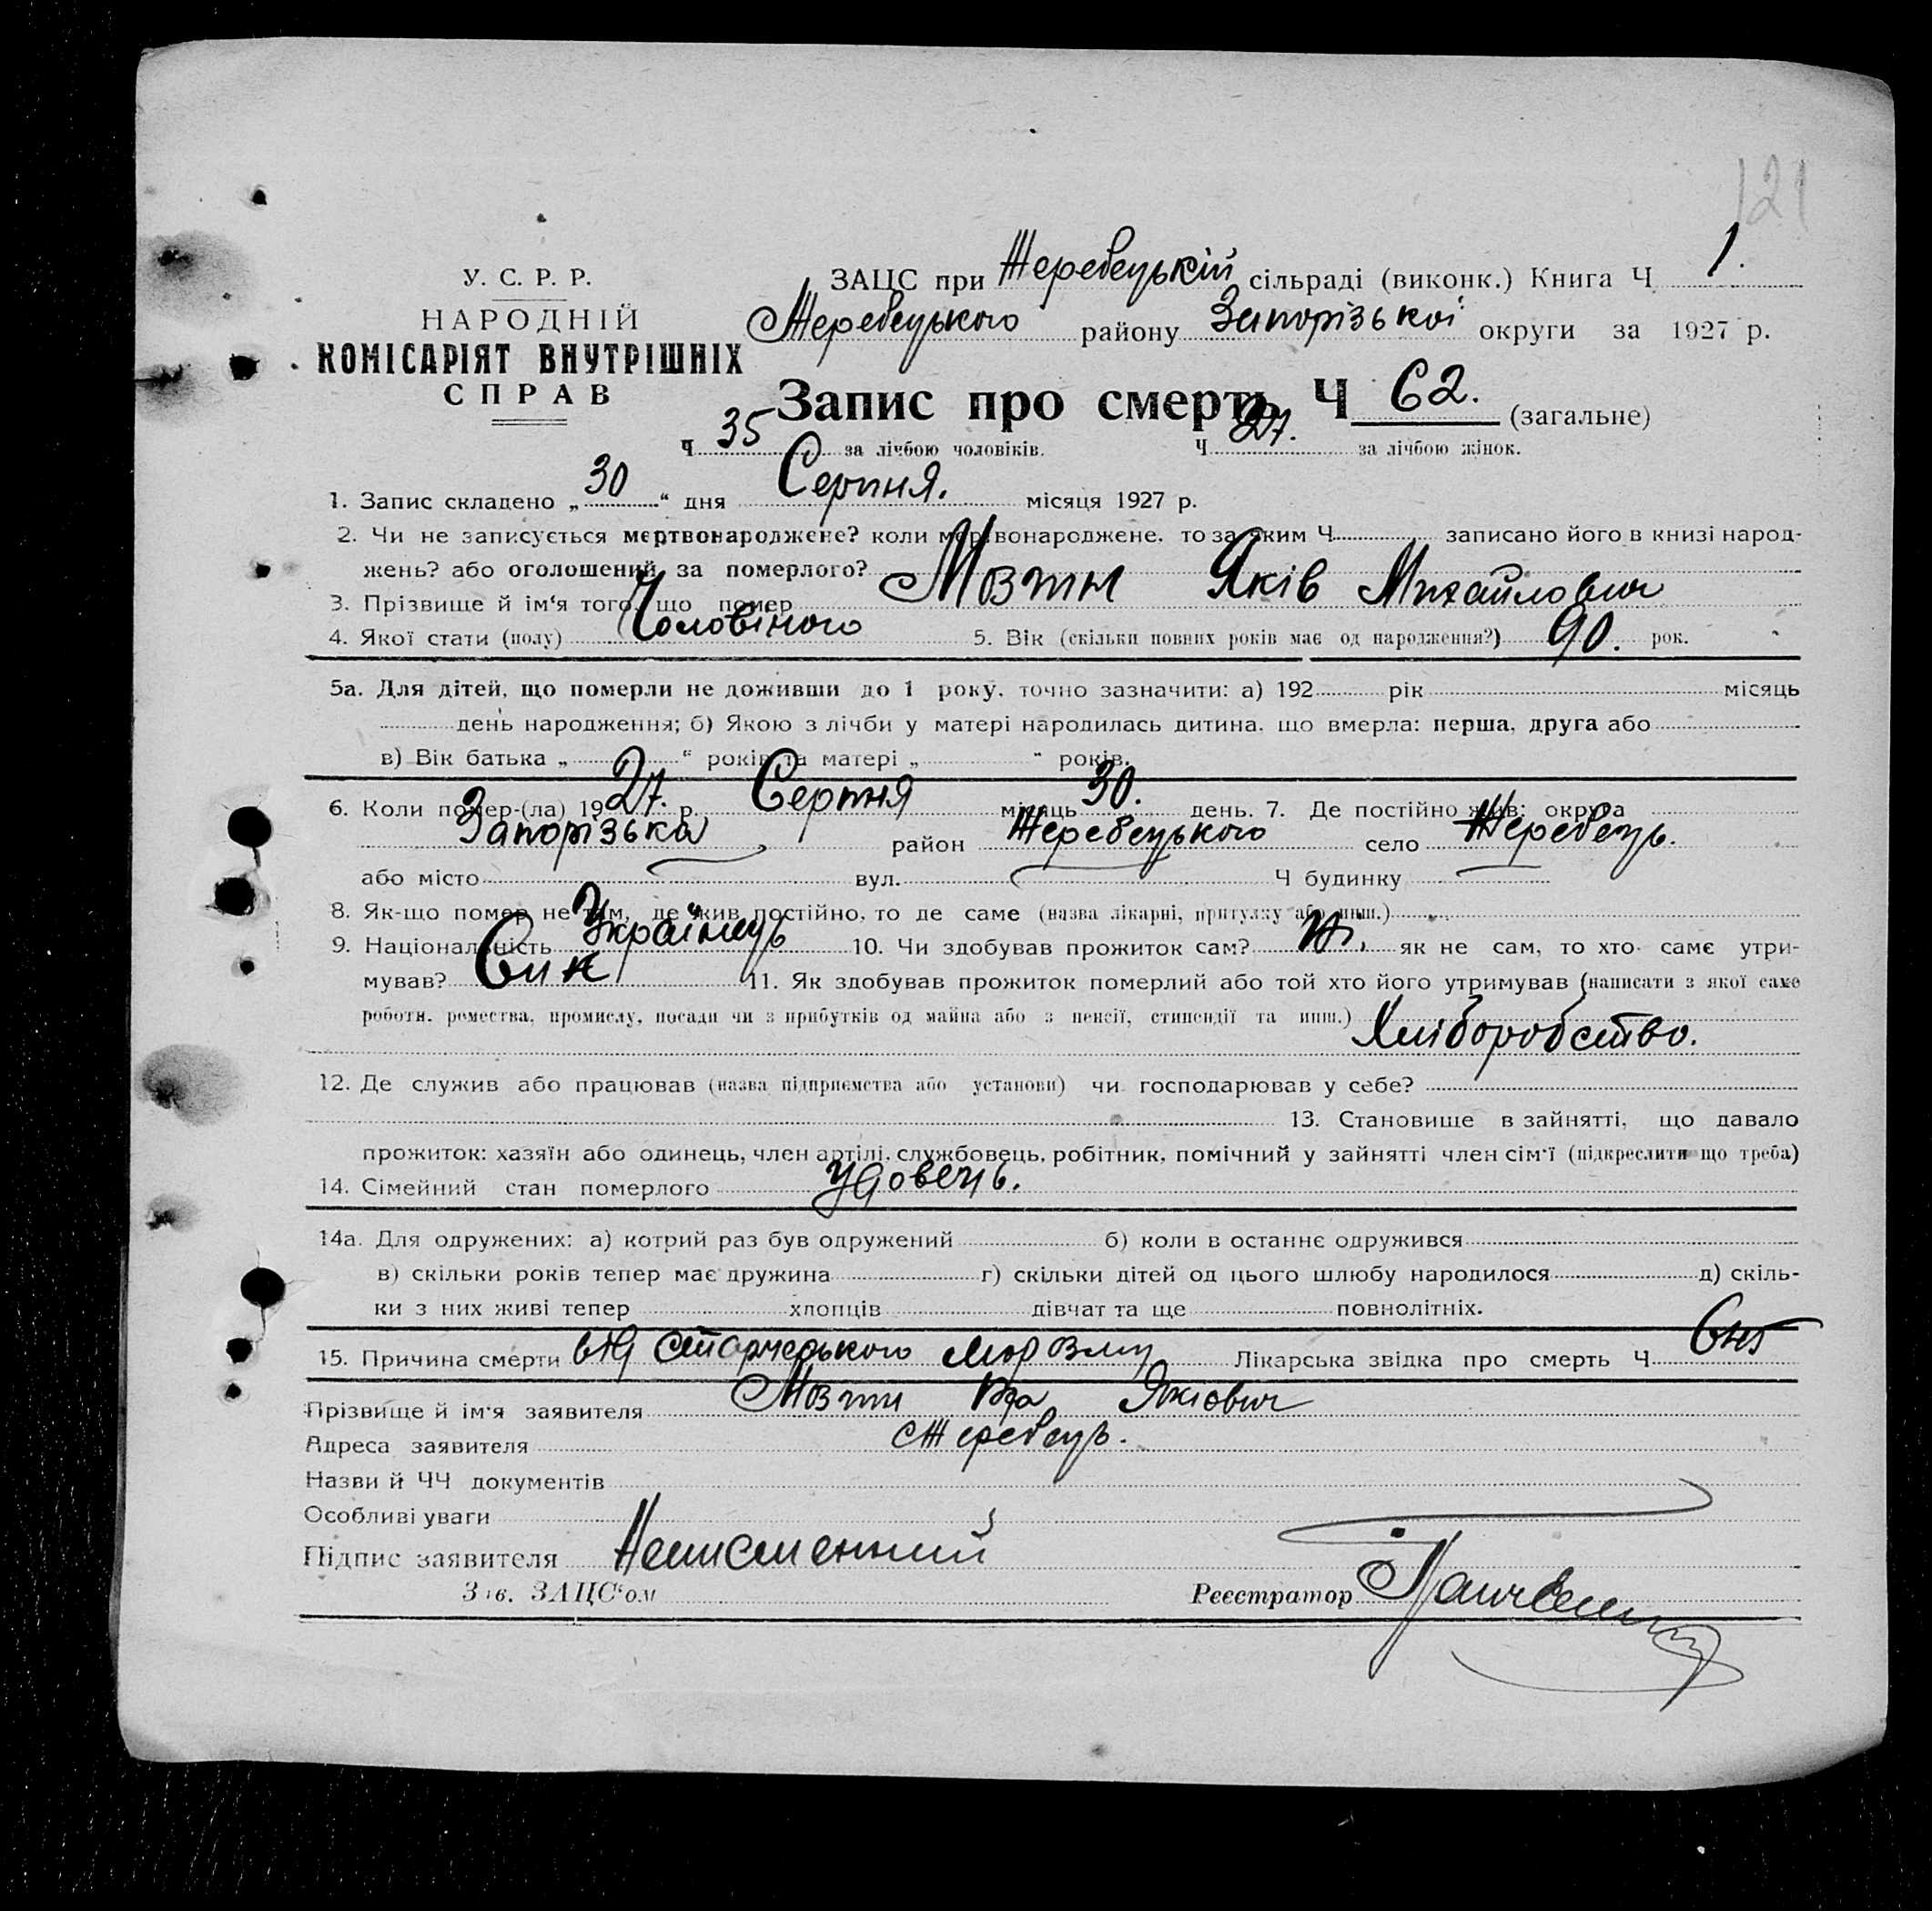 121
У. С. Р. Р.
НАРОДНІЙ
КОМІСАРІЯТ ВНУТРІШНІХ
СПРАВ
ЗАЦС при Жеребецькій сільраді (виконк.) Книга Ч 1.
Жеребецького району Запорізької округи за 1927 р.
Запис про смерть Ч 62. (загальне)
Ч 35 за лічбою чоловіків. Ч 27. за лічбою жінок.
1. Запис складено „30“ дня Серпня. місяця 1927 р.
2. Чи не записується мертвонароджене? коли мертвонароджене, то за яким Ч записано його в книзі народ-
жень? або оголошений за померлого?
3. Прізвище й ім‘я того, що помер Яків Михайлович
4. Якої стати (полу) Чоловічого 5. Вік (скільки повних років має од народження?) 90. рок.
5а. Для дітей, що померли не доживши до 1 року, точно зазначити: а) 192 рік місяць
день народження; б) Якою з лічби у матері народилась дитина, що вмерла: перша, друга або
в) Вік батька „ “ років та матері „ “ років.
6. Коли помер-(ла) 1927. р. Серпня місяць 30. день. 7. Де постійно жив: округа
Запорізька район Жеребецького село Жеребець.
або місто вул. Ч будинку
8. Як-що помер не там, де жив постійно, то де саме (назва лікарні, притулку або инш.)
9. Національність Українець 10. Чи здобував прожиток сам? Ні, як не сам, то хто саме утри-
мував? Син 11. Як здобував прожиток померлий або той хто його утримував (написати з якої саме
роботи, ремества, промислу, посади чи з прибутків од майна або з пенсії, стипендії та инш.) Хліборобство.
12. Де служив або працював (назва підприємства або установи) чи господарював у себе?
13. Становище в зайнятті, що давало
прожиток: хазяїн або одинець, член артілі, службовець, робітник, помічний у зайнятті член сім‘ї (підкреслити що треба)
14. Сімейний стан померлого удовець.
14а. Для одружених: а) котрий раз був одружений б) коли в останнє одружився
в) скільки років тепер має дружина г) скільки дітей од цього шлюбу народилося д) скіль-
ки з них живі тепер хлопців дівчат та ще повнолітніх.
15. Причина смерти від старчеського Лікарська звідка про смерть Ч
Прізвище й ім‘я заявителя Якович
Адреса заявителя Жеребець.
Назви й ЧЧ документів
Особливі уваги
Підпис заявителя Неписменний
Зав. ЗАЦС‘ом Реєстратор